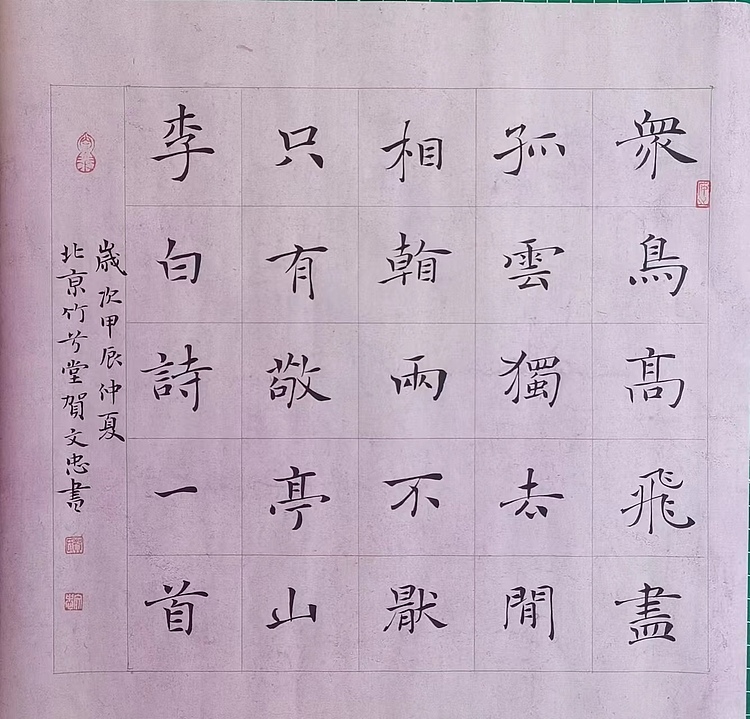 衆鳥髙飛盡
孤雲獨去閒
相看兩不厭
只有敬亭山
李白詩一首
歲次甲辰仲夏
北京竹兮堂賀文忠書